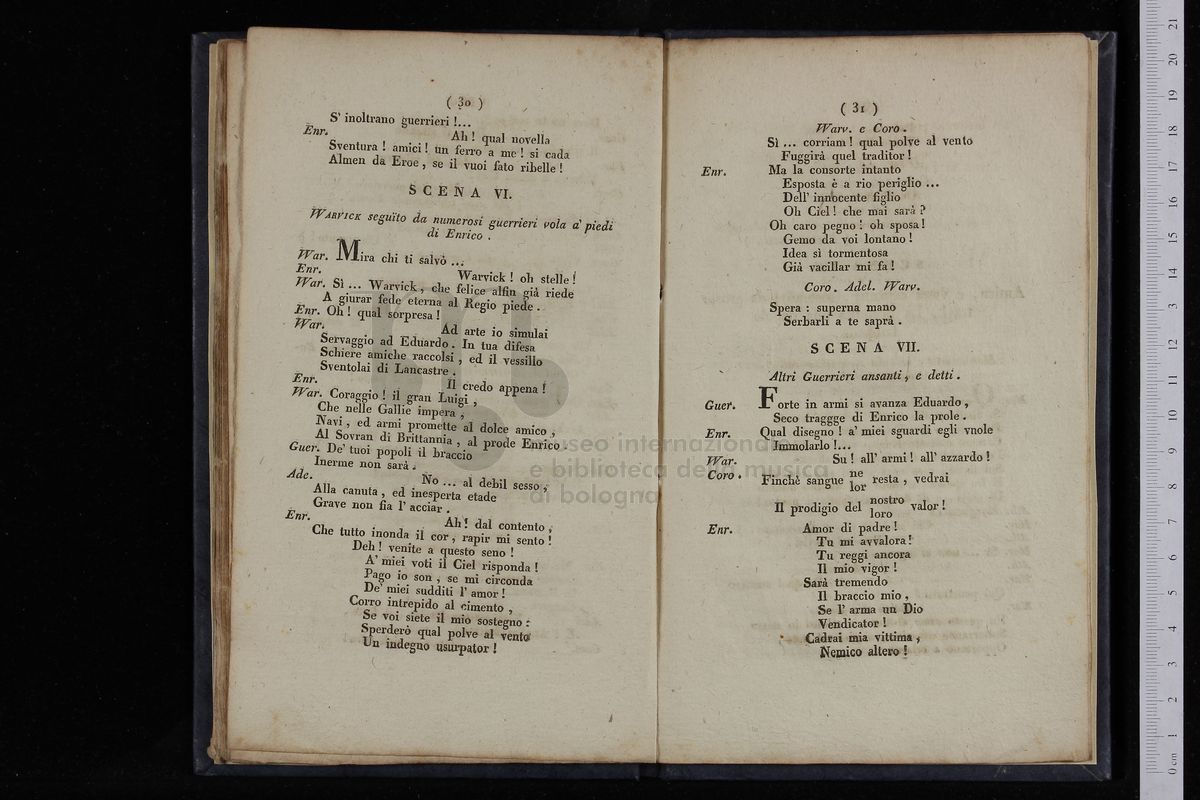 ( 30 )
S' inoltrano guerrieri !...
Enr. Ah ! qual novella
Sventura ! amici ! un ferro a me ! si cada
Almen da Eroe , se il vuoi fato ribelle !
SCENA VI.
WARVICK seguito da numerosi guerrieri vola a' piedi
di Enrico .
War. Mira chi ti salvò ...
Enr. Warvick ! oh stelle !
War. Sì ... Warvick , che felice alfin già riede
A giurar fede eterna al Regio piede .
Enr. Oh ! qual sorpresa !
War. Ad arte io simulai
Servaggio ad Eduardo . In tua difesa
Schiere amiche raccolsi , ed il vessillo
Sventolai di Lancastre .
Enr. Il credo appena !
War. Coraggio ! il gran Luigi ,
Che nelle Gallie impera ,
Navi , ed armi promette al dolce amico ,
Al Sovran di Brittannia , al prode Enrico .
Guer. De' tuoi popoli il braccio
Inerme non sarà .
Ade. No ... al debil sesso ,
Alla canuta , ed inesperta etade
Grave non fia l' acciar .
Enr. Ah ! dal contento ,
Che tutto inonda il cor , rapir mi sento !
Deh ! venite a questo seno !
A' miei voti il Ciel risponda !
Pago io son , se mi circonda
De' miei sudditi l' amor !
Corro intrepido al cimento ,
Se voi siete il mio sostegno :
Sperderò qual polve al vento
Un indegno usurpator !
( 31 )
Warv. e Coro .
Sì ... corriam ! qual polve al vento
Fuggirà quel traditor !
Enr. Ma la consorte intanto
Esposta è a rio periglio ...
Dell' innocente figlio
Oh Ciel ! che mai sarà ?
Oh caro pegno ! oh sposa !
Gemo da voi lontano !
Idea sì tormentosa
Già vacillar mi fa !
Coro. Adel. Warv.
Spera : superna mano
Serbarli a te saprà .
SCENA VII.
Altri Guerrieri ansanti , e detti .
Guer. Forte in armi si avanza Eduardo ,
Seco traggge di Enrico la prole .
Enr. Qual disegno ! a' miei sguardi egli vuole
Immolarlo !...
War. Su ! all' armi ! all' azzardo !
Coro . Finchè sangue ne resta , vedrai
lor
Il prodigio del nostro valor !
loro
Enr. Amor di padre !
Tu mi avvalora !
Tu reggi ancora
Il mio vigor !
Sarà tremendo
Il braccio mio ,
Se l' arma un Dio
Vendicator !
Cadrai mia vittima ,
Nemico altero !
museo internazionale
e biblioteca della musica
di bologna
0 cm 1 2 3 4 5 6 7 8 9 10 11 12 13 14 15 16 17 18 19 20 21